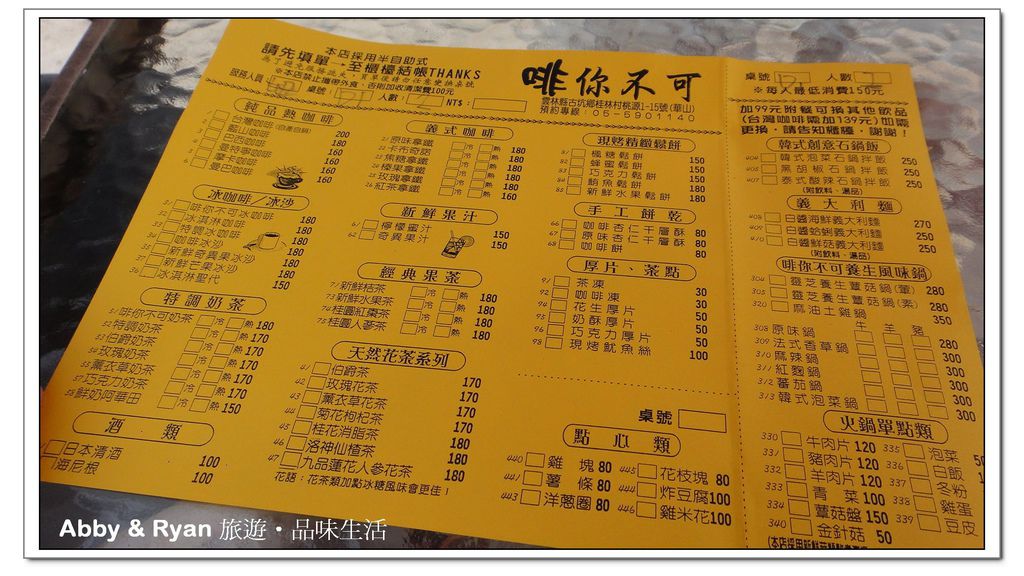 請先填單→至櫃檯結帳THANKS
本店採用半自助式
※本店禁止攜帶外食，否則加收清潔費100元
服務人員 桌號 人數 NT$：
啡你不可
雲林縣古坑鄉桂林村桃源1-15號(華山)
預約專線：05-5901140
純品熱咖啡
台灣咖啡(自產自銷) 200
藍山咖啡 180
巴西咖啡 160
曼特寧咖啡 160
摩卡咖啡 160
曼巴咖啡 160
冰咖啡/冰沙
啡你不可冰咖啡 180
冰淇淋咖啡 180
特調冰咖啡 180
咖啡冰沙 180
新鮮奇異果冰沙 180
新鮮芒果冰沙 180
冰淇淋聖代 150
特調奶茶
啡你不可奶茶 冷 熱 180
特調奶茶 冷 熱 170
伯爵奶茶 冷 熱 170
玫瑰奶茶 冷 熱 170
薰衣草奶茶 冷 熱 170
巧克力奶茶 冷 熱 170
鮮奶阿華田 冷 熱 150
酒類
日本清酒 100
海尼根 100
義式咖啡
原味拿鐵 冷 熱 150
卡布奇諾 冷 熱 150
焦糖拿鐵 冷 熱 150
榛果拿鐵 冷 熱 150
玫瑰拿鐵 冷 熱 150
紅茶拿鐵 冷 熱 160
新鮮果汁
61 檸檬蜜汁 150
62 奇異果汁 150
經典果茶
71 新鮮桔茶 冷 熱 180
73 新鮮水果茶 冷 熱 180
74 桂圓紅棗茶 冷 熱 180
75 桂圓人蔘茶 冷 熱 180
天然花茶系列
41 伯爵茶 170
42 玫瑰花茶 170
43 薰衣草花茶 170
44 菊花枸杞茶 170
45 桂花消脂茶 180
46 洛神仙楂茶 180
47 九品蓮花人參花茶 180
花語：花茶類加點冰糖風味會更佳！
現烤精緻鬆餅
81 楓糖鬆餅 150
82 蜂蜜鬆餅 150
83 巧克力鬆餅 150
84 鮪魚鬆餅 180
85 新鮮水果鬆餅 180
手工餅乾
66 咖啡杏仁千層酥 80
67 原味杏仁千層酥 80
68 咖啡餅 80
厚片、茶點
91 茶凍 30
92 咖啡凍 30
94 花生厚片 50
95 奶酥厚片 50
96 巧克力厚片 50
98 現烤魷魚絲 100
桌號
點心類
440 雞塊 80
441 薯條 80
443 洋蔥圈 80
445 花枝塊 80
444 炸豆腐 100
446 雞米花 100
桌號 人數
※每人最低消費150元
加99元附餐可換其他飲品
(台灣咖啡需加139元)如需
更換，請告知櫃檯，謝謝！
韓式創意石鍋飯
404 韓式泡菜石鍋拌飯 250
405 黑胡椒石鍋拌飯 250
407 泰式酸辣石鍋拌飯 250
(附飲料、湯品)
義大利麵
408 白醬海鮮義大利麵 270
409 白醬蛤蜊義大利麵 250
410 白醬鮮菇義大利麵 250
(附飲料、湯品)
啡你不可養生風味鍋
304 靈芝養生蕈菇鍋(葷) 280
305 靈芝養生蕈菇鍋(素) 280
320 麻油土雞鍋 350
牛 羊 豬
308 原味鍋 280
309 法式香草鍋 300
310 麻辣鍋 300
311 紅麴鍋 300
312 番茄鍋 300
313 韓式泡菜鍋 300
火鍋單點類
330 牛肉片 120
331 豬肉片 120
332 羊肉片 120
333 青菜 100
334 蕈菇盤 150
340 金針菇 50
335 泡菜
336 白飯
337 冬粉
338 雞蛋
339 豆皮
Abby & Ryan 旅遊・品味生活